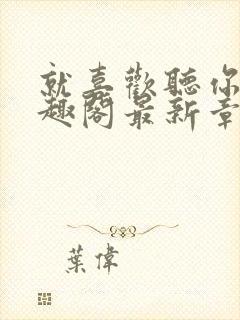 就喜歡聽你
趣閣最新章
葉偉